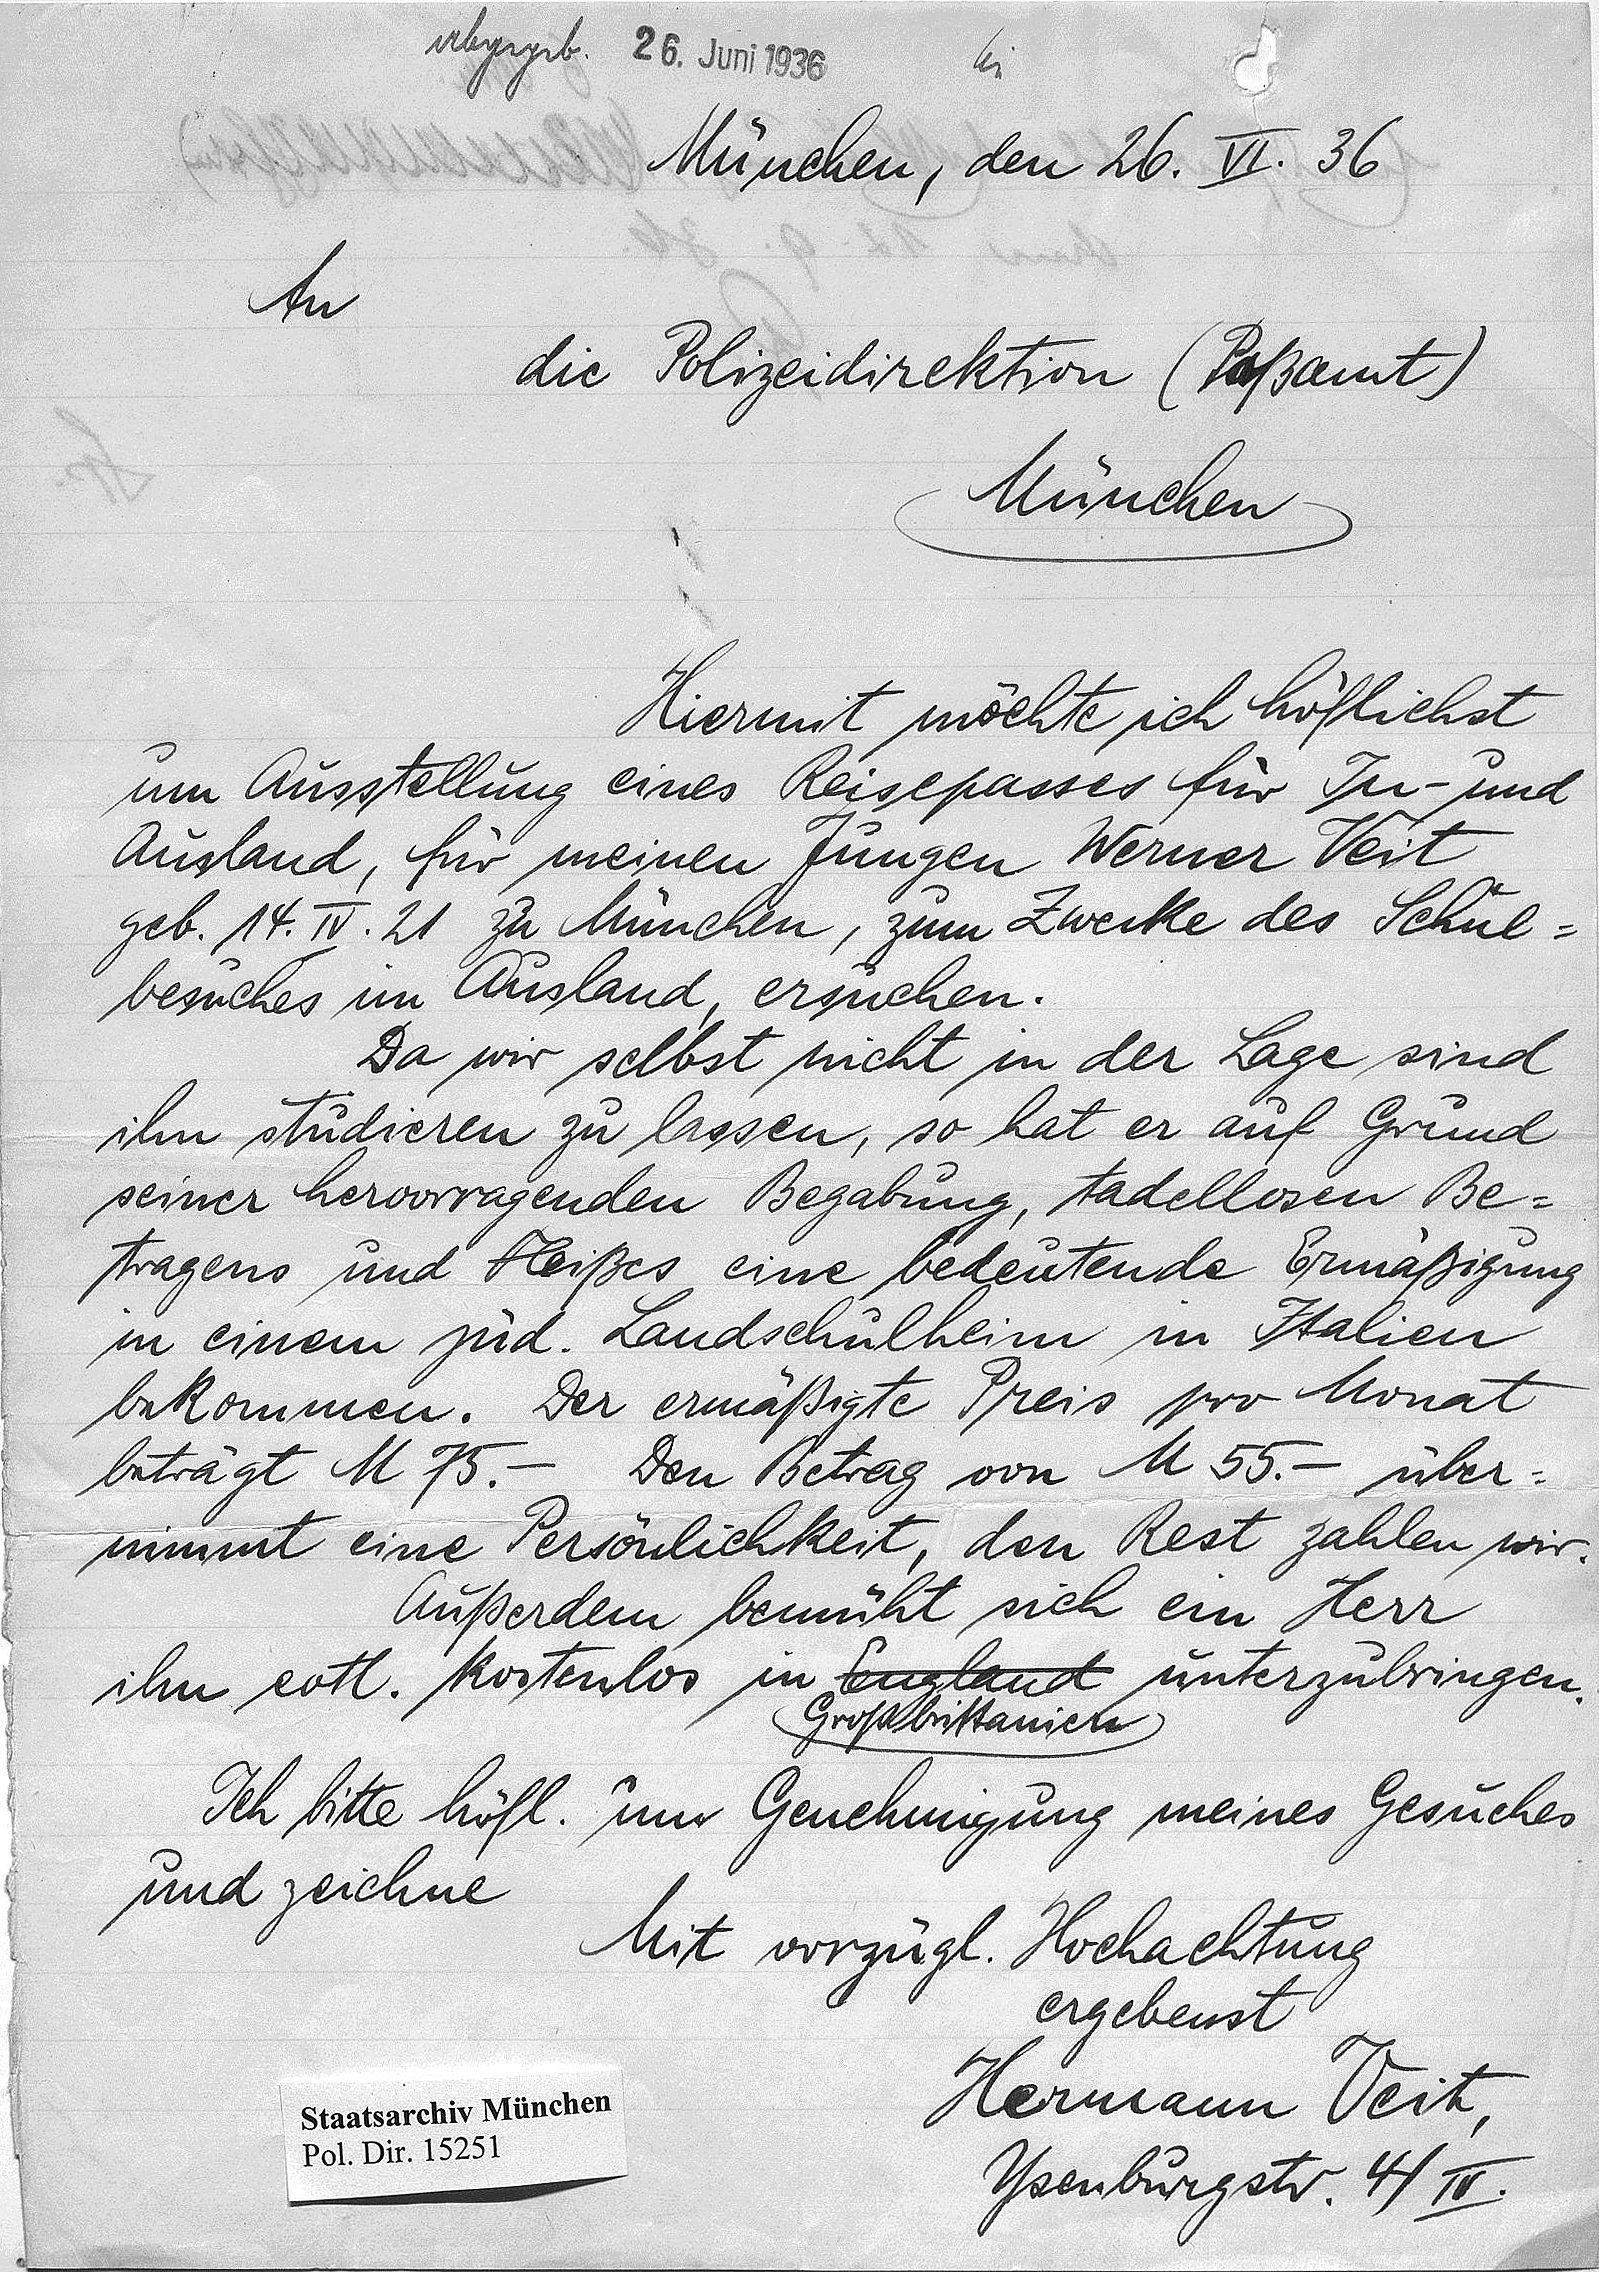 abgegeb. 26. Juni 1936
München, den 26. VI. 36
An
die Polizeidirektion (Paßamt)
München
Hiermit möchte ich höflichst
um Ausstellung eines Reisepasses für In- und
Ausland, für meinen Jungen Werner Veit
geb. 14. IV. 21 zu München, zum Zwecke des Schul=
besuches im Ausland, ersuchen.
Da wir selbst nicht in der Lage sind
ihn studieren zu lassen, so hat er auf Grund
seiner hervorragenden Begabung, tadellosen Be=
tragens und Fleißes eine bedeutende Ermäßigung
in einem jüd. Landschulheim in Italien
bekommen. Der ermäßigte Preis pro Monat
beträgt M 75.- Den Betrag von M 55.- über=
nimmt eine Persönlichkeit, den Rest zahlen wir.
Außerdem bemüht sich ein Herr
ihn evtl. kostenlos in England unterzubringen.
Großbrittanien
Ich bitte höfl. um Genehmigung meines Gesuches
und zeichne
Mit vorzügl. Hochachtung
ergebenst
Hermann Veit,
Ysenburgstr. 4/IV.
Staatsarchiv München
Pol. Dir. 15251